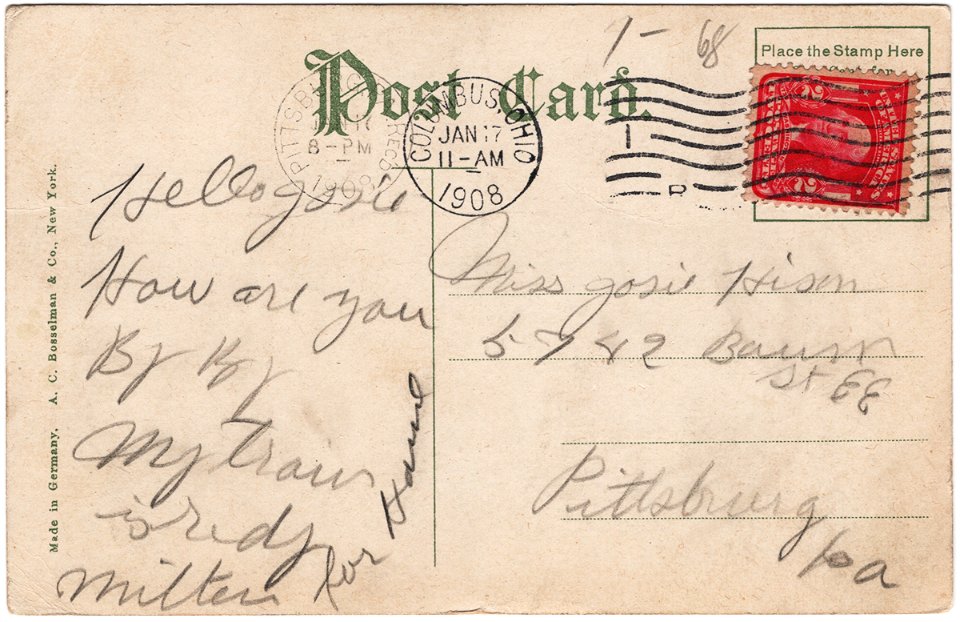 1- 68
Post Card.
Place the Stamp Here
PITTSB
REC'D
8-PM
1908
COLUMBUS, OHIO
JAN 17
11-AM
1908
Hello Josie
How are you
By By
My train
is redy
Milten
for Home
Miss Josie Hison
5742
St EE
Pittsburg
Pa
Made in Germany. A. C. Bosselman & Co., New York.
2 2